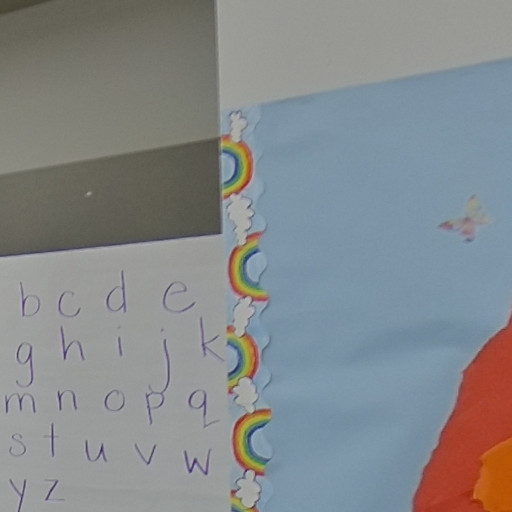 b c d e
g h i j k
m n o p q
s t u v w
y z